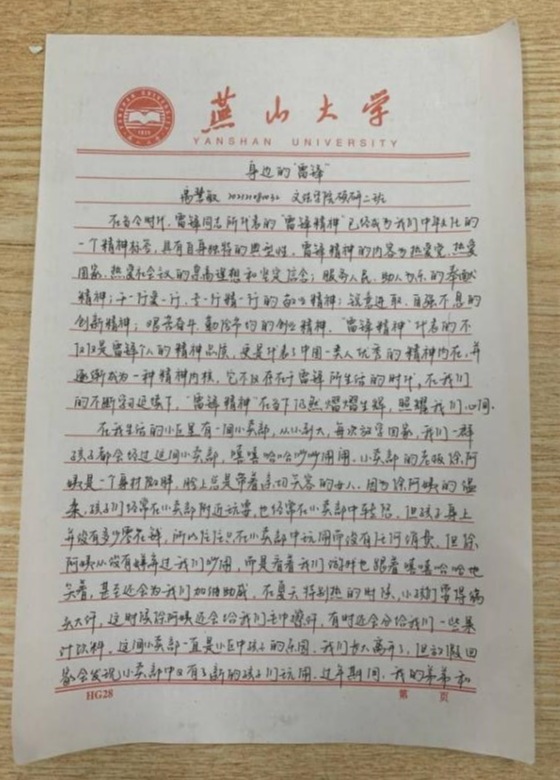 燕山大学
YANSHAN UNIVERSITY
身边的"雷锋"
文法学院硕研二班
在当今时代，雷锋同志所代表的"雷锋精神"已经成为我们中华民族的
一个精神标签，具有自身独特的典型性，雷锋精神的内容为热爱党、热爱
国家、热爱社会主义的崇高理想和坚定信念；服务人民、助人为乐的奉献
精神；干一行爱一行、专一行精一行的敬业精神；锐意进取、自强不息的
创新精神；艰苦奋斗、勤俭节约的创业精神。"雷锋精神"代表的不
仅仅是雷锋个人的精神品质，更是代表了中国一类人优秀的精神内在，并
逐渐成为一种精神内核，它不仅存在于雷锋所生活的时代，在我们
的不断学习延续下，"雷锋精神"在当下仍然熠熠生辉，照耀我们心间。
在我生活的小区里有一间小卖部，从小到大，每次放学回家，我们一群
孩子都会经过这间小卖部，嘻嘻哈哈吵吵闹闹，小卖部的老板徐阿
姨是一个身材微胖，脸上总是带着亲切笑容的女人，因为徐阿姨的温
柔，孩子们经常在小卖部附近玩耍，也经常在小卖部中转悠，但孩子身上
并没有多少零花钱，所以往往只在小卖部中玩闹而没有任何消费，但徐
阿姨从没有嫌弃过我们吵闹，而是看着我们闹时也跟着嘻嘻哈哈地
笑着，甚至还会为我们加油助威，在夏天特别热的时候，小孩们常得满
头大汗，这时候徐阿姨还会给我们毛巾擦汗，有时还会分给我们一些果
汁饮料，这间小卖部一直是小区中孩子的乐园，我们长大离开了，但放假回
家会发现小卖部中又有了新的孩子们玩闹，过年期间，我的弟弟和
HG28
第 页